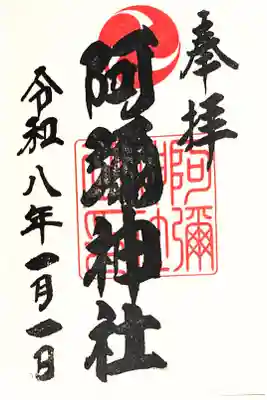 奉拝
阿彌神社
令和八年一月一日
阿彌神社印